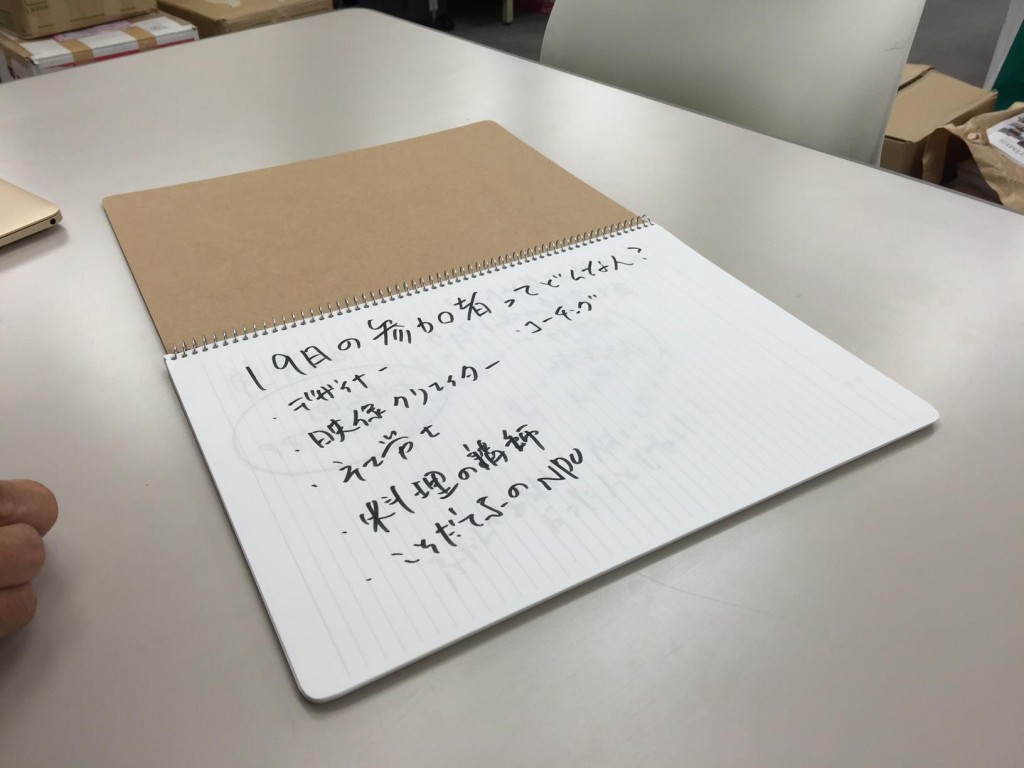 19日の参加者ってどんな人?
・デザイナー
・コーチング
・映像クリエイター
・弁護士
・料理の講師
・こそだてSのNPO